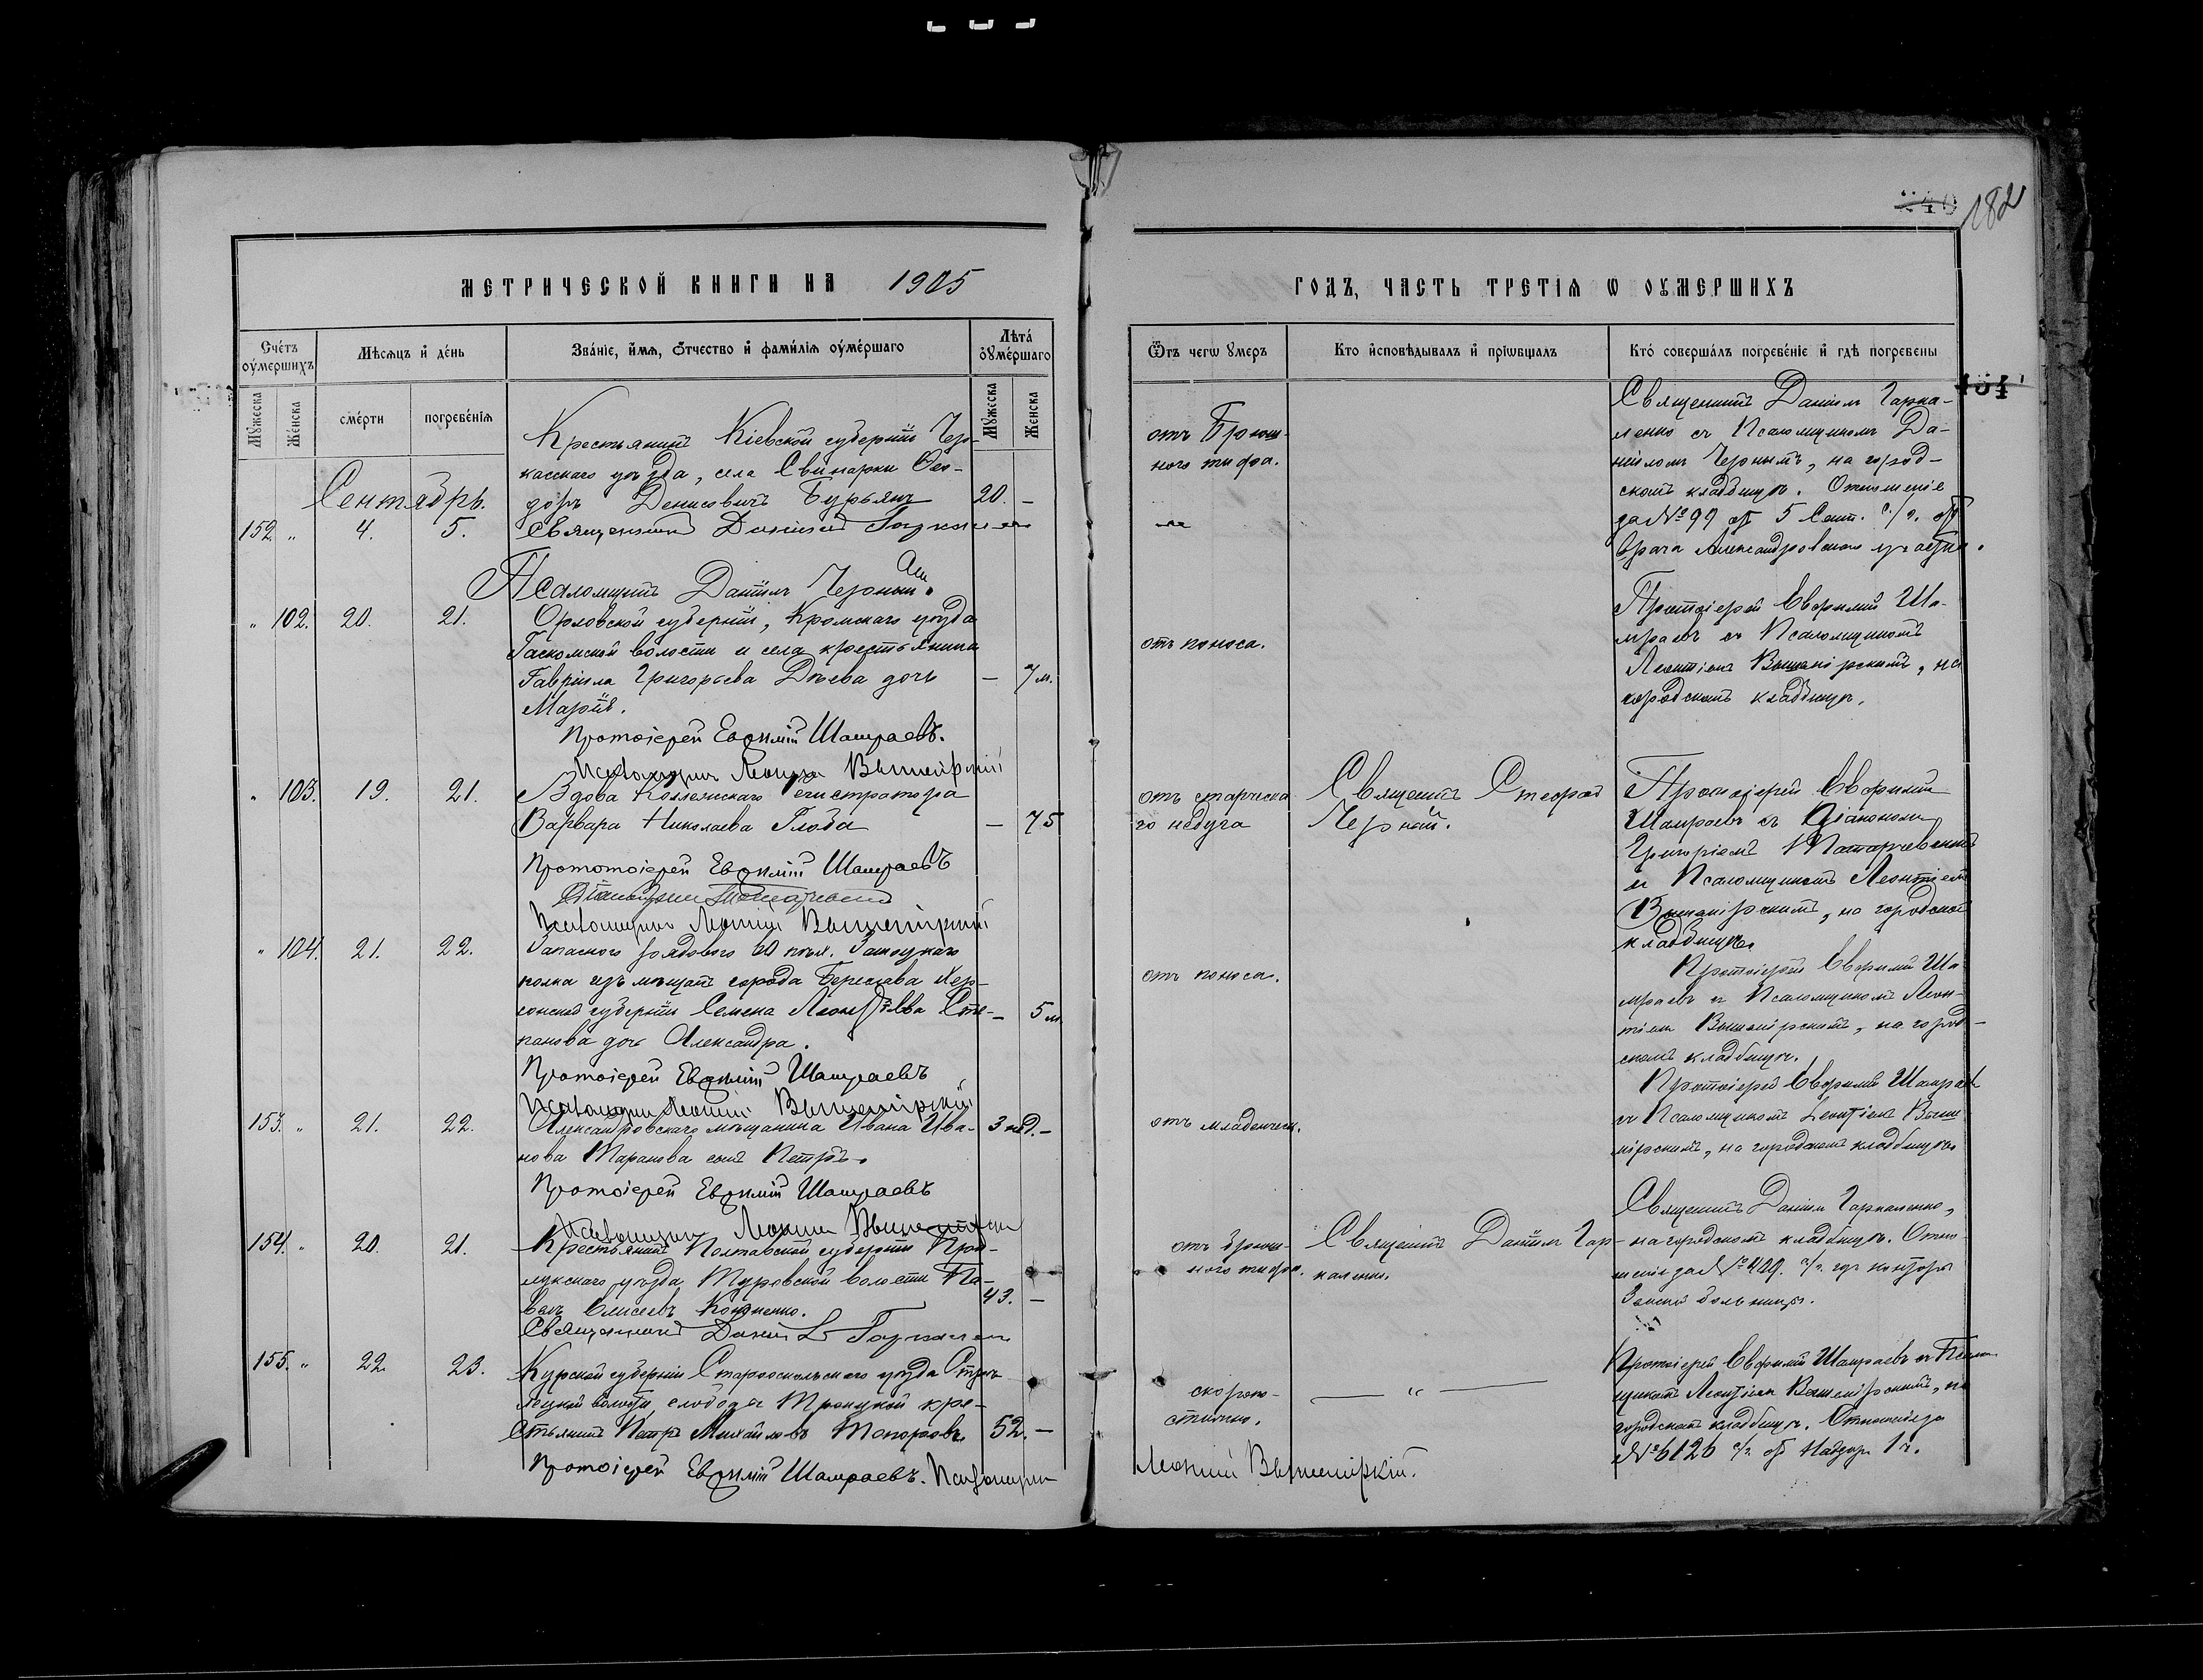 182
МЕТРИЧЕСКОЙ КНИГИ НА 1905
ГОДЪ, ЧАСТЬ ТРЕТІЯ Ѡ ОУМЕРШИХЪ
Счетъ оумершихъ
Мѣсяцъ и день
Званіе, имя, отчество и фамилія оумершаго
Лѣта оумершаго
Мужеска
Женска
смерти
погребенія
Мужеска
Женска
Ѿтъ чегѡ умеръ
Кто исповѣдывалъ и пріѡбщалъ
Кто совершалъ погребеніе и гдѣ погребены
Сентябрь.
152 " 4. 5.
Крестьянинъ Кіевской губерніи Чер-
касскаго уѣзда, села Свинарки Ѳео-
доръ Денисовичъ Бурьянъ 20. –
Священникъ Даніилъ
Псаломщикъ Даніилъ Черный.
отъ Брюш-
ного тифа.
Священникъ Даніилъ Гарка-
ленко съ Псаломщикомъ Да-
ніиломъ Чернымъ, на город-
скомъ кладбищѣ. Отношеніе
за № 99 отъ 5 Сент. с/г. отъ
врача Александровскаго
" 102. 20. 21.
Орловской губерніи, Кромскаго уѣзда
волости и села крестьянина
Гавріила Григорьева Дѣева дочь – 7 м.
Марія.
Протоіерей Евфимій Шамраевъ.
Псаломщикъ Леонтій
отъ поноса.
Протоіерей Евфимій Ша-
мраевъ съ Псаломщикомъ
Леонтіемъ Вышемірскимъ, на
городскомъ кладбищѣ.
" 103. 19. 21.
Вдова Коллежскаго Регистратора
Варвара Николаева Глоба – 75
Протоіерей Евфимій Шамраевъ
Псаломщикъ Леонтій Вышемірскій
отъ старческа-
го недуга
Священникъ Стефанъ
Черный.
Протоіерей Евфимій
Шамраевъ съ Діакономъ
Григоріемъ
и Псаломщикомъ Леонтіемъ
Вышемірскимъ, на городскомъ
кладбищѣ.
" 104. 21. 22.
Запаснаго рядового
полка изъ мѣщанъ города Берислава Хер-
сонской губерніи Семена Леонтіева Сте- – 5 м.
панова дочь Александра.
Протоіерей Евфимій Шамраевъ
Псаломщикъ Леонтій Вышемірскій
отъ поноса.
Протоіерей Евфимій Ша-
мраевъ съ Псаломщикомъ Леон-
тіемъ Вышемірскимъ, на город-
скомъ кладбищѣ.
153. " 21. 22.
Александровскаго мѣщанина Ивана Ива- 3 нед. –
нова Таранова сынъ Петръ.
Протоіерей Евфимій Шамраевъ
Псаломщикъ Леонтій
отъ младенческ.
Протоіерей Евфимій Шамраев
съ Псаломщикомъ Леонтіемъ Выше-
мірскимъ, на городскомъ кладбищѣ
154. " 20. 21.
Крестьянинъ Полтавской губерніи При-
лукскаго уѣзда, Туровской волости Па-
велъ Елисеевъ 43. –
Священникъ Даніилъ
отъ брюш-
ного тифа.
Священникъ Даніилъ Гар-
каленко.
Священникъ Даніилъ Гаркаленко,
на городскомъ кладбищѣ. Отно-
шеніе за № 429. с/г. конторы
Земской больницы.
155. " 22. 23.
Курской губерніи Старооскольскаго уѣзда
волости, слободы Троицкой кре-
стьянинъ Петръ Михайловъ Топоровъ. 52. –
Протоіерей Евфимій Шамраевъ. Псаломщикъ
Леонтій Вышемірскій.
скоропо-
стижно.
— " —
Протоіерей Евфимій Шамраевъ съ Псалом-
щикомъ Леонтіемъ Вышемірскимъ, на
городскомъ кладбищѣ. Отношеніе за
№ 6126 с/г. отъ 1 ч.